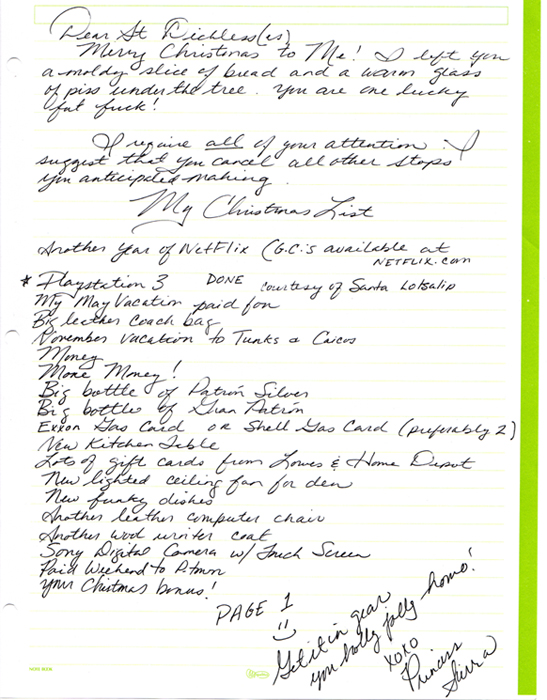 Dear St Dickless(es)
Merry Christmas to Me! I left you
a moldy slice of bread and a warm glass
of piss under the tree. You are one lucky
fat fuck!
I require all of your attention. I
suggest that you cancel all other stops
you anticipated making.
My Christmas List
Another Year of NetFlix (G.C.'s available at
NETFLIX.com
* Playstation 3 DONE courtesy of Santa Lotsalip
My May Vacation paid for
Big leather Coach bag
November vacation to Turks & Caicos
Money
More Money!
Big bottle of Patrón Silver
Big bottle of Gran Patrón
Exxon Gas Card or Shell Gas Card (preferably 2)
New Kitchen Table
Lots of gift cards from Lowes & Home Depot
New lighted ceiling fan for den
New funky dishes
Another leather computer chair
Another wool winter coat
Sony Digital Camera w/ Touch Screen
Paid Weekend to
Your Christmas bonus!
PAGE 1
Get it in gear
you holly jolly homo!
XOXO
Princess
Sierra